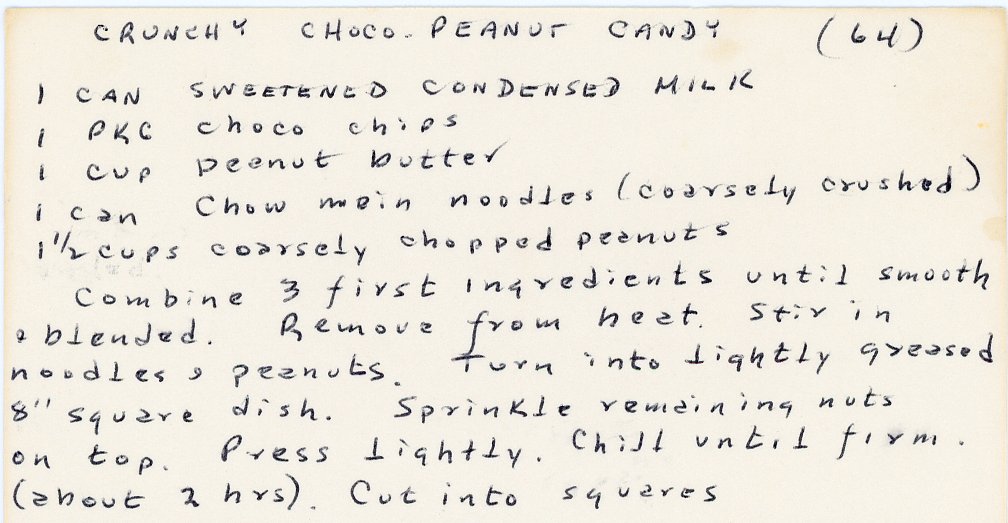 CRUNCHY CHOCO-PEANUT CANDY (64)
1 CAN SWEETENED CONDENSED MILK
1 PKG choco chips
1 cup peenut butter
1 can Chow mein noodles (coarsely crushed)
1 1/2 cups coarsely chopped peanuts
Combine 3 first ingredients until smooth
& blended. Remove from heat. Stir in
noodles & peanuts. Turn into lightly greased
8" square dish. Sprinkle remaining nuts
on top. Press lightly. Chill until firm.
(about 2 hrs). Cut into squares